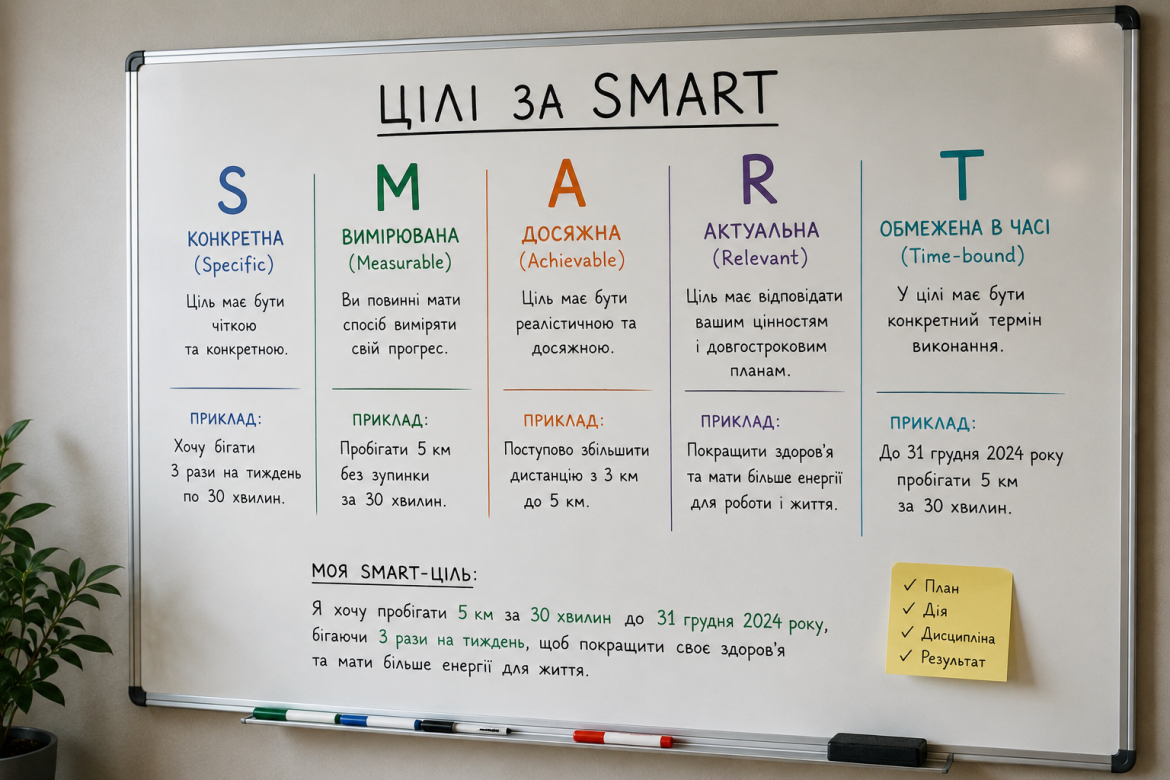 ЦІЛІ ЗА SMART
S
КОНКРЕТНА
(Specific)
Ціль має бути
чіткою
та конкретною.
ПРИКЛАД:
Хочу бігати
3 рази на тиждень
по 30 хвилин.
M
ВИМІРЮВАНА
(Measurable)
Ви повинні мати
спосіб виміряти
свій прогрес.
ПРИКЛАД:
Пробігати 5 км
без зупинки
за 30 хвилин.
A
ДОСЯЖНА
(Achievable)
Ціль має бути
реалістичною та
досяжною.
ПРИКЛАД:
Поступово збільшити
дистанцію з 3 км
до 5 км.
R
АКТУАЛЬНА
(Relevant)
Ціль має відповідати
вашим цінностям
і довгостроковим
планам.
ПРИКЛАД:
Покращити здоров'я
та мати більше енергії
для роботи і життя.
T
ОБМЕЖЕНА В ЧАСІ
(Time-bound)
У цілі має бути
конкретний термін
виконання.
ПРИКЛАД:
До 31 грудня 2024 року
пробігати 5 км
за 30 хвилин.
МОЯ SMART-ЦІЛЬ:
Я хочу пробігати 5 км за 30 хвилин до 31 грудня 2024 року,
бігаючи 3 рази на тиждень, щоб покращити своє здоров'я
та мати більше енергії для життя.
✓ План
✓ Дія
✓ Дисципліна
✓ Результат